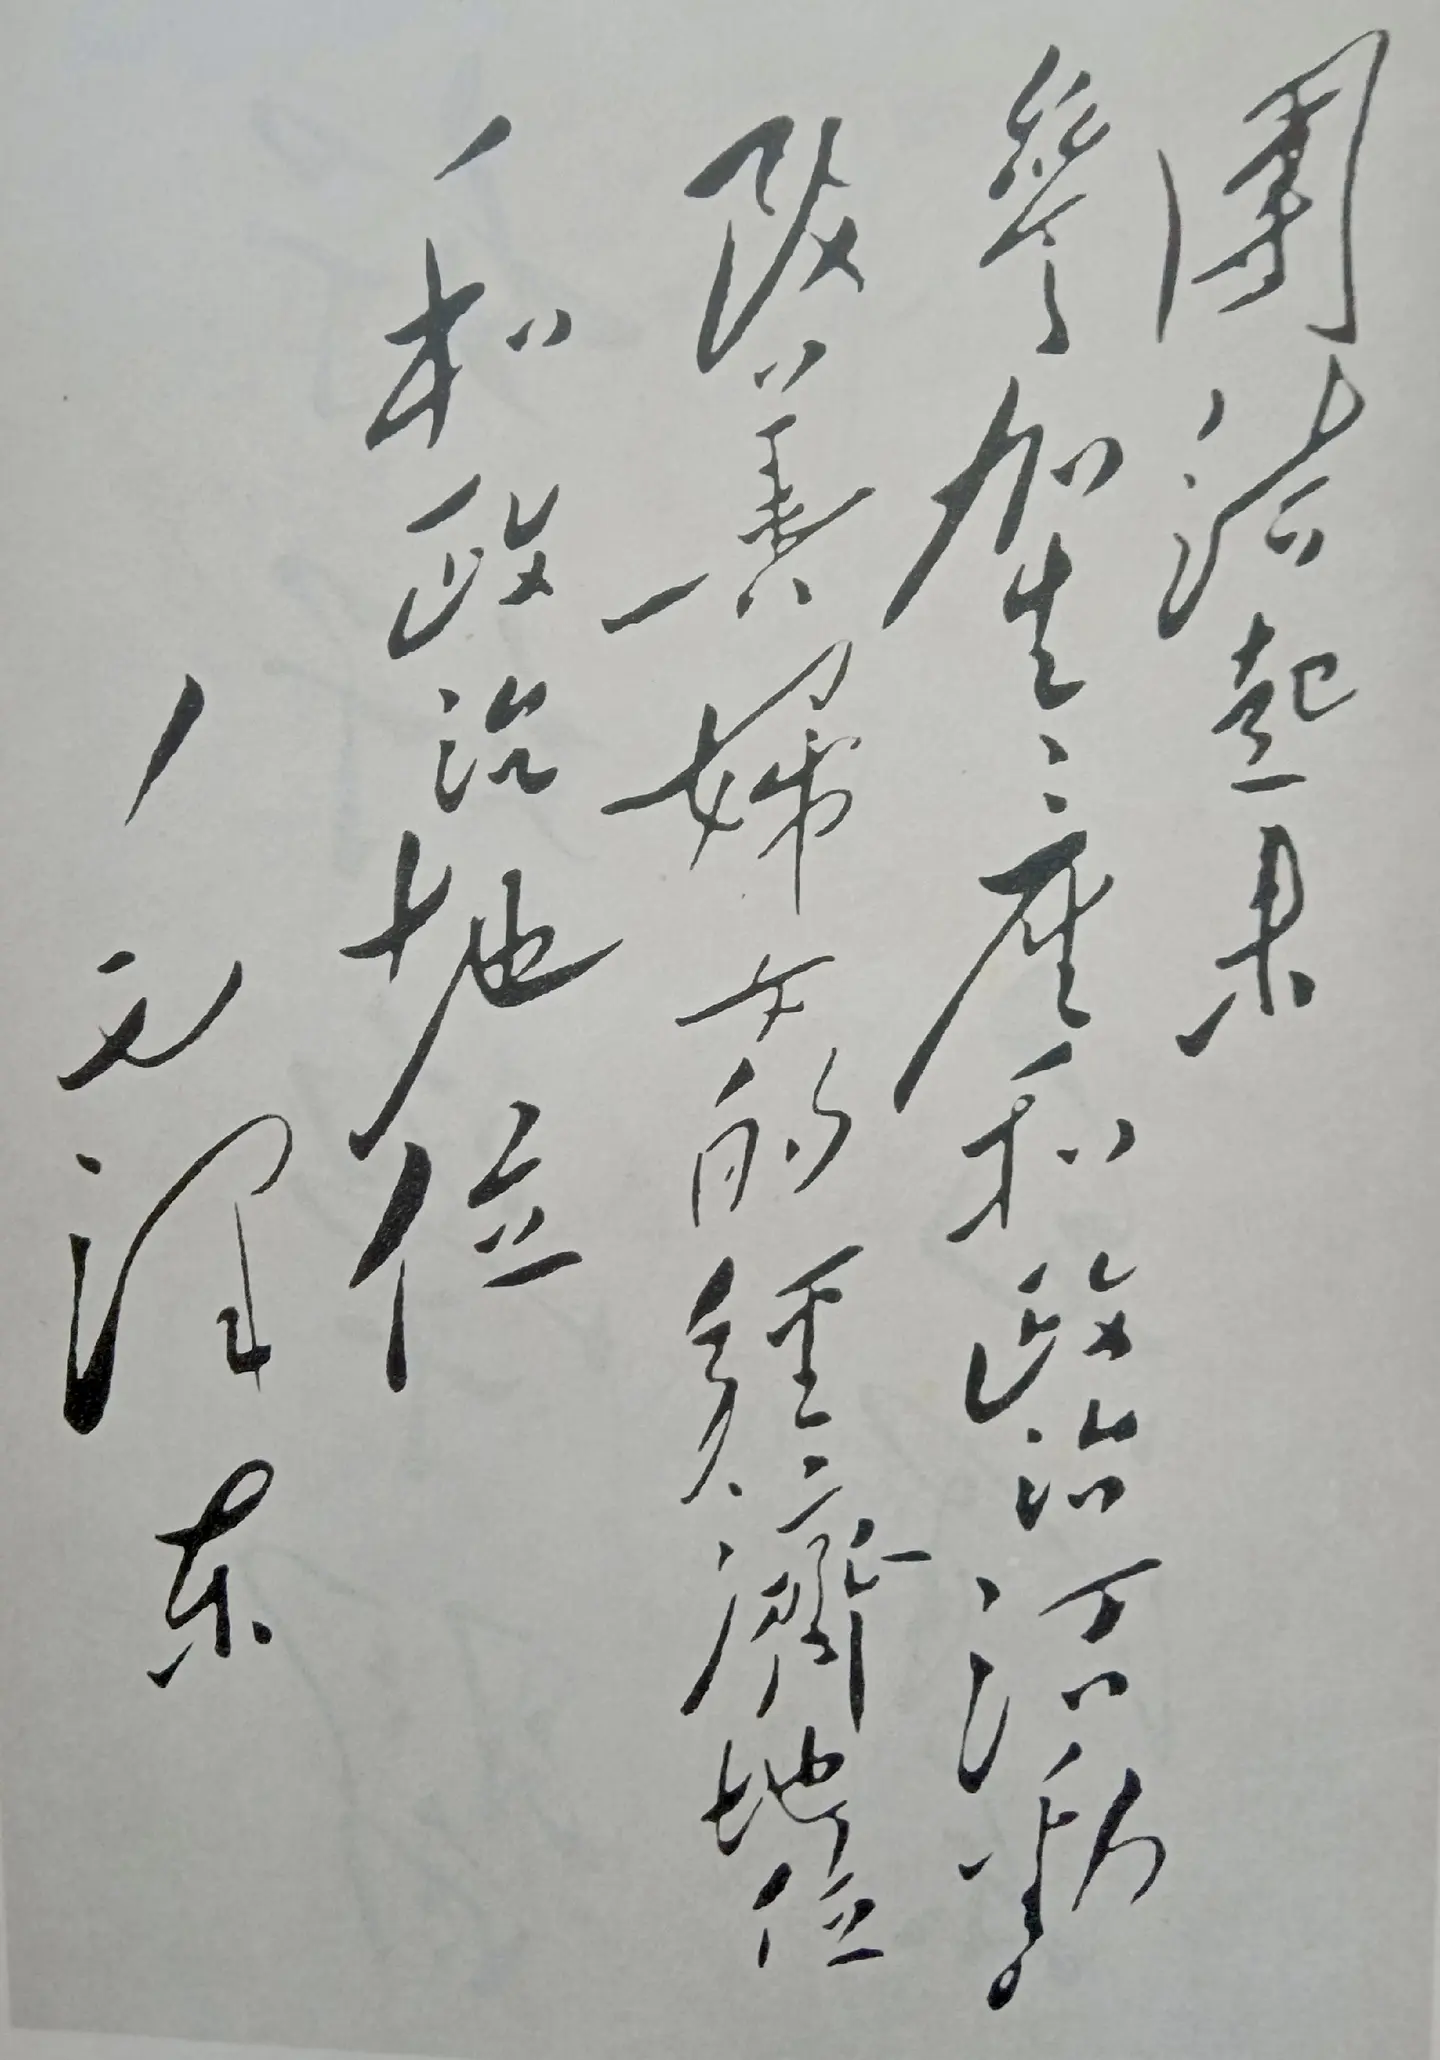 團結起來
參加生產和政治活動
改善婦女的經濟地位
和政治地位
毛澤东